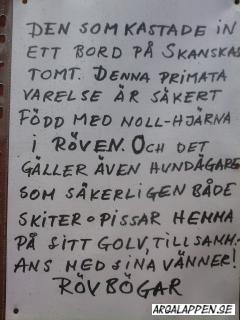 DEN SOM KASTADE IN
ETT BORD PÅ SKANSKAS
TOMT. DENNA PRIMATA
VARELSE ÄR SÄKERT
FÖDD MED NOLL-HJÄRNA
I RÖVEN. OCH DET
GÄLLER ÄVEN HUNDÄGARE
SOM SÄKERLIGEN BÅDE
SKITER O PISSAR HEMMA
PÅ SITT GOLV, TILLSAMM-
ANS MED SINA VÄNNER!
RÖVBÖGAR
ARGALAPPEN.SE